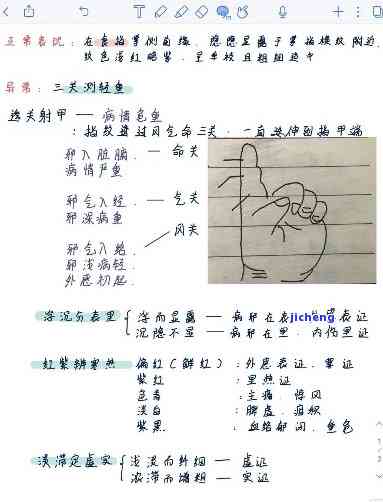 正常表现：在食指掌侧前缘，隐隐显露于掌指横纹附近，
纹色浅红略紫，呈单枝且粗细适中
异常：三关测轻重
透关射甲 — 病情危重
：指纹透过风气命三关，一直延伸到指甲端
邪入脏腑，— 命关
病情严重
邪气入经，— 气关
邪深病重
风关
邪气入络，
邪浅病轻，
外感初起。
浮沉分表里 { 浮而显露 — 病邪在表 jicheng 表证
沉隐不显 — 病邪在里，内伤里证
红紫辨寒热 偏红（鲜红）：外感表证、寒证
紫红：里热证
色青：主痛、惊风
淡白：脾虚、疳积
紫黑：血络郁闭，重危
淡滞定虚实 { 浅淡而纤细 — 虚证
浓滞而增粗 — 实证
1/2